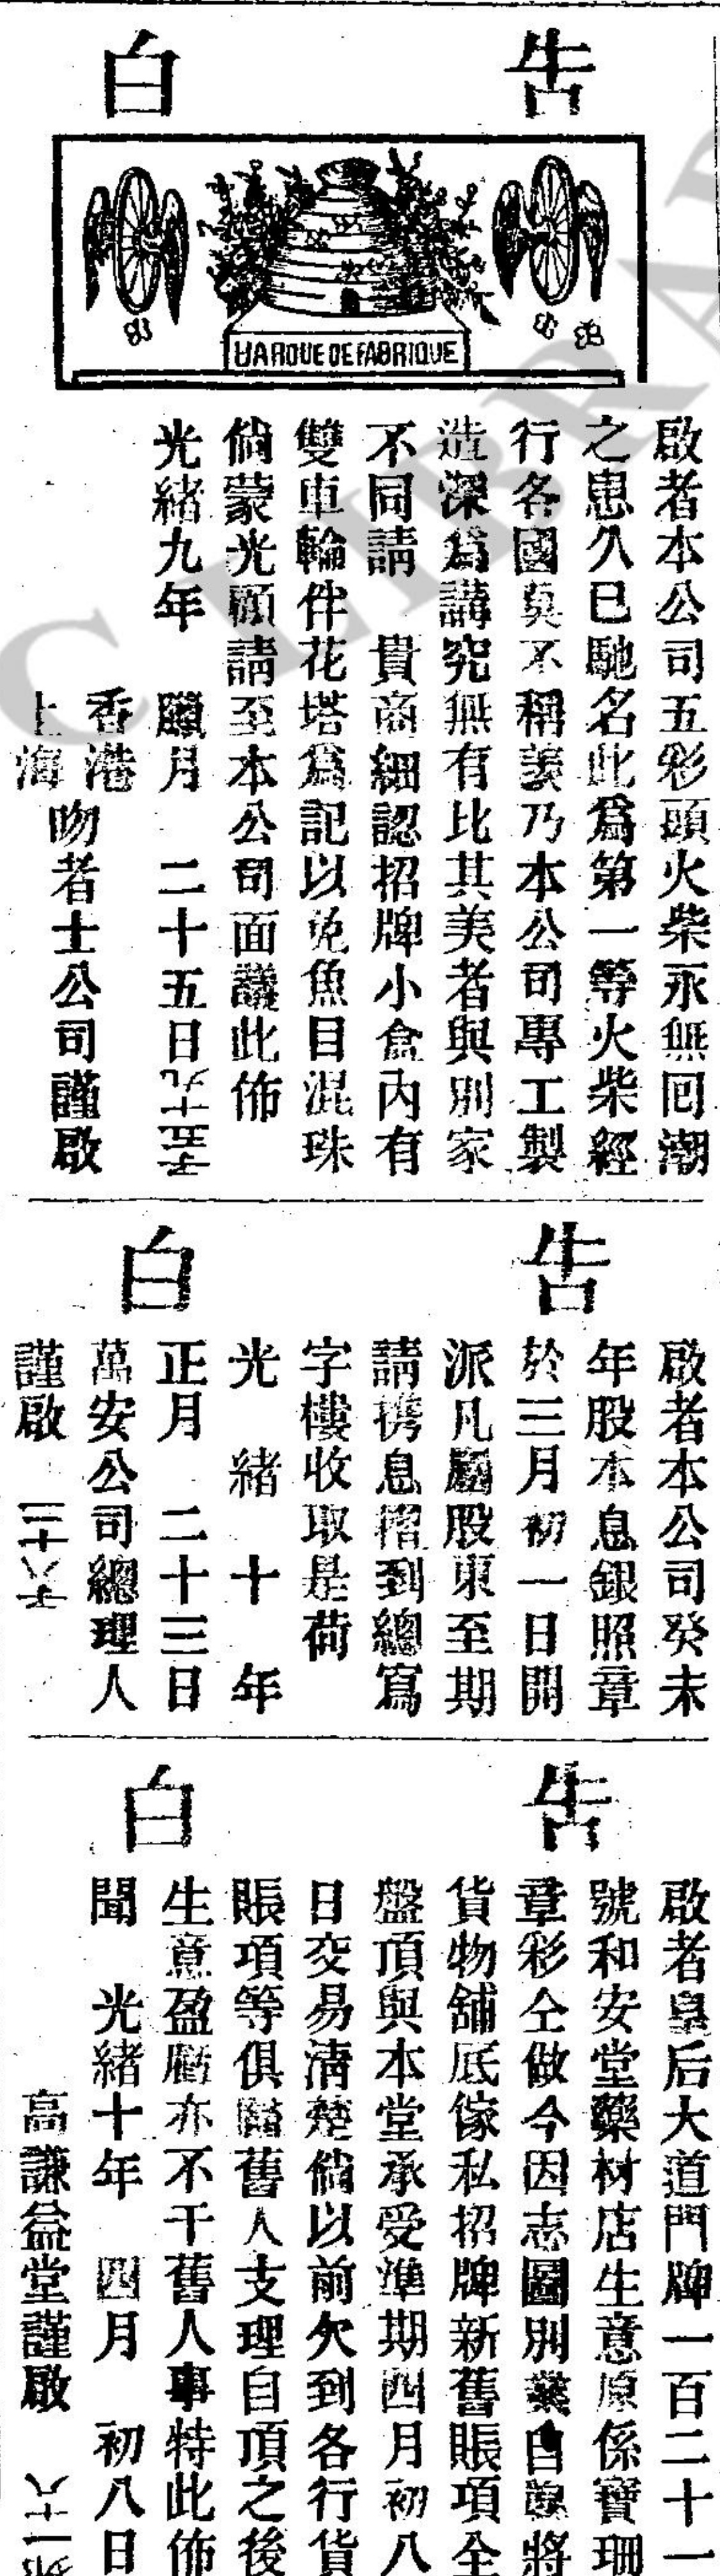 告白
MARQUE DE FABRIQUE
啟者本公司五彩頭火柴永無回潮
之患久已馳名此爲第一等火柴經
行各國莫不稱羨乃本公司專工製
造深爲講究無有比其美者與別家
不同請 貴商細認招牌小盒內有
雙車輪伴花塔爲記以免魚目混珠
倘蒙光顧請至本公司面議此佈
光緒九年 臘月 二十五日
香港
上海
吻者士公司謹啟
告白
啟者本公司癸未
年股本息銀照章
於三月初一日開
派凡屬股東至期
請携息摺到總寫
字樓收取是荷
光緒十年
正月二十三日
萬安公司總理人
謹啟
告白
啟者皇后大道門牌一百二十一
號和安堂藥材店生意原係寶珊
章彩仝做今因志圖別業自願將
貨物舖底傢私招牌新舊賬項全
盤頂與本堂承受準期四月初八
日交易淸楚倘以前欠到各行貨
賬項等俱歸舊人支理自頂之後
生意盈虧亦不干舊人事特此佈
聞 光緒十年 四月 初八日
高謙益堂謹啟